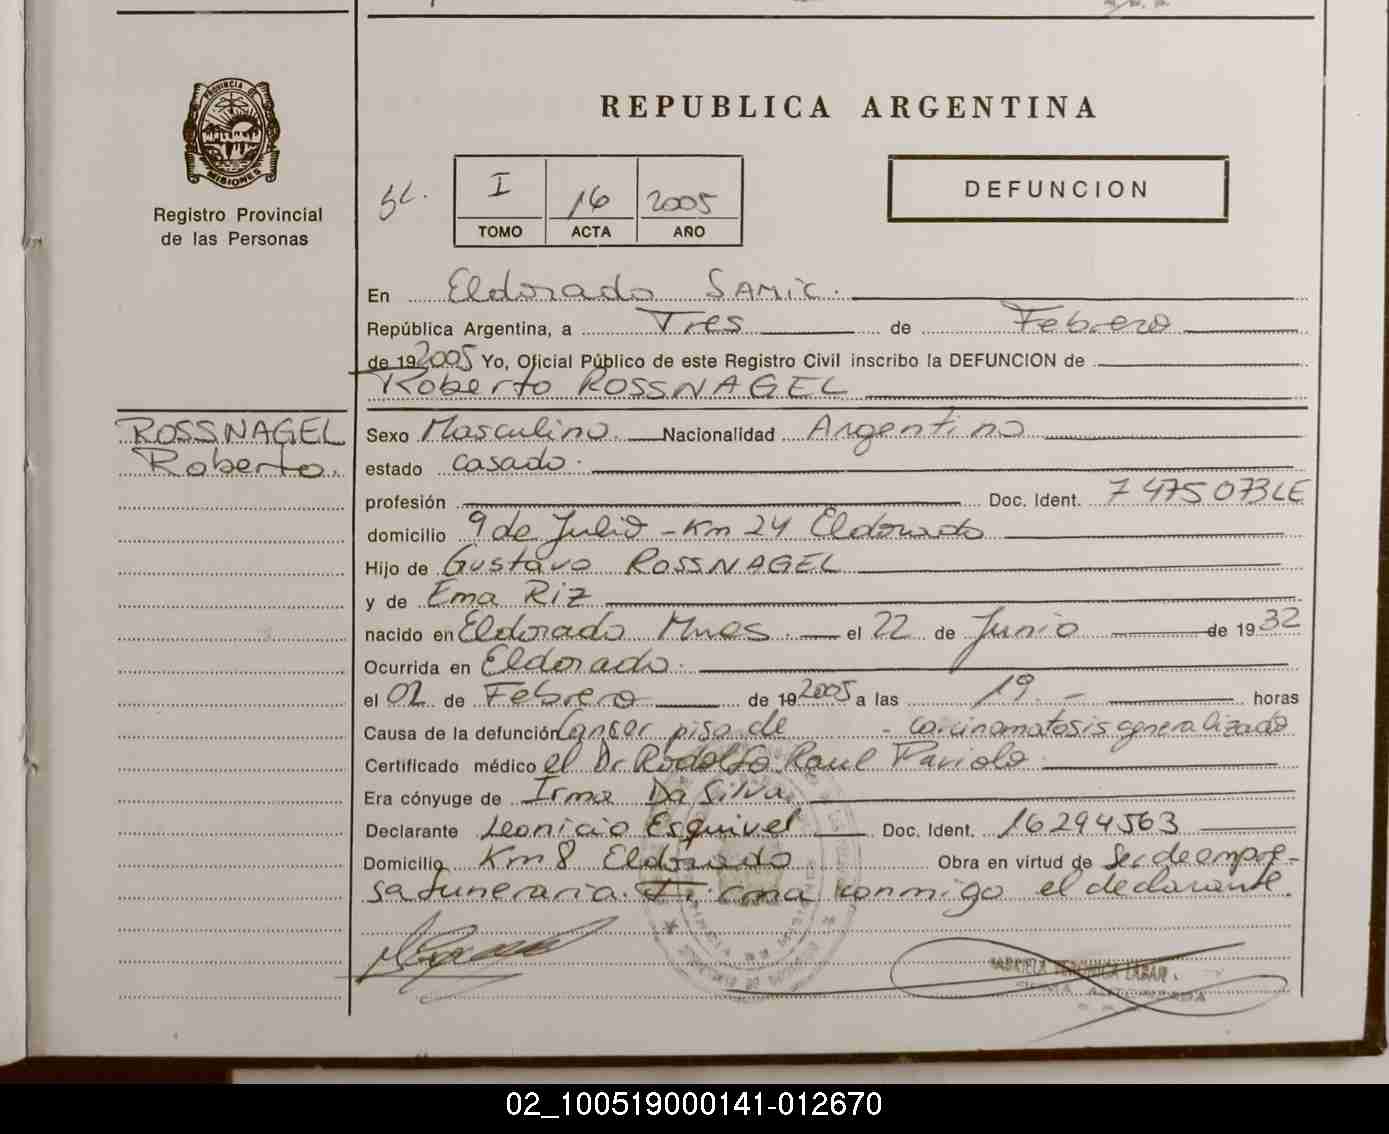 PROVINCIA DE
MISIONES
Registro Provincial
de las Personas
REPUBLICA ARGENTINA
I 16 2005
TOMO ACTA AÑO
DEFUNCION
En Eldorado SAMIC.
República Argentina, a Tres de Febrero
de 19 2005 Yo, Oficial Público de este Registro Civil inscribo la DEFUNCION de
Roberto ROSSNAGEL
ROSSNAGEL
Roberto.
Sexo Masculino Nacionalidad Argentino
estado casado.
profesión Doc. Ident. 7475073LE
domicilio 9 de Julio - Km 24 Eldorado
Hijo de Gustavo ROSSNAGEL
y de Ema Riz
nacido en Eldorado Mnes. el 22 de Junio de 1932
Ocurrida en Eldorado.
el 02 de Febrero de 19 2005 a las 19.- horas
Causa de la defunción Cancer piso de - carcinomatosis generalizado
Certificado médico el Dr Rodolfo Raul
Era cónyuge de Irma Da Silva
Declarante Leonicio Esquivel Doc. Ident. 16294563
Domicilio Km 8 Eldorado Obra en virtud de Ser de empre-
sa funeraria. Firma conmigo el declarante.
02_100519000141-012670